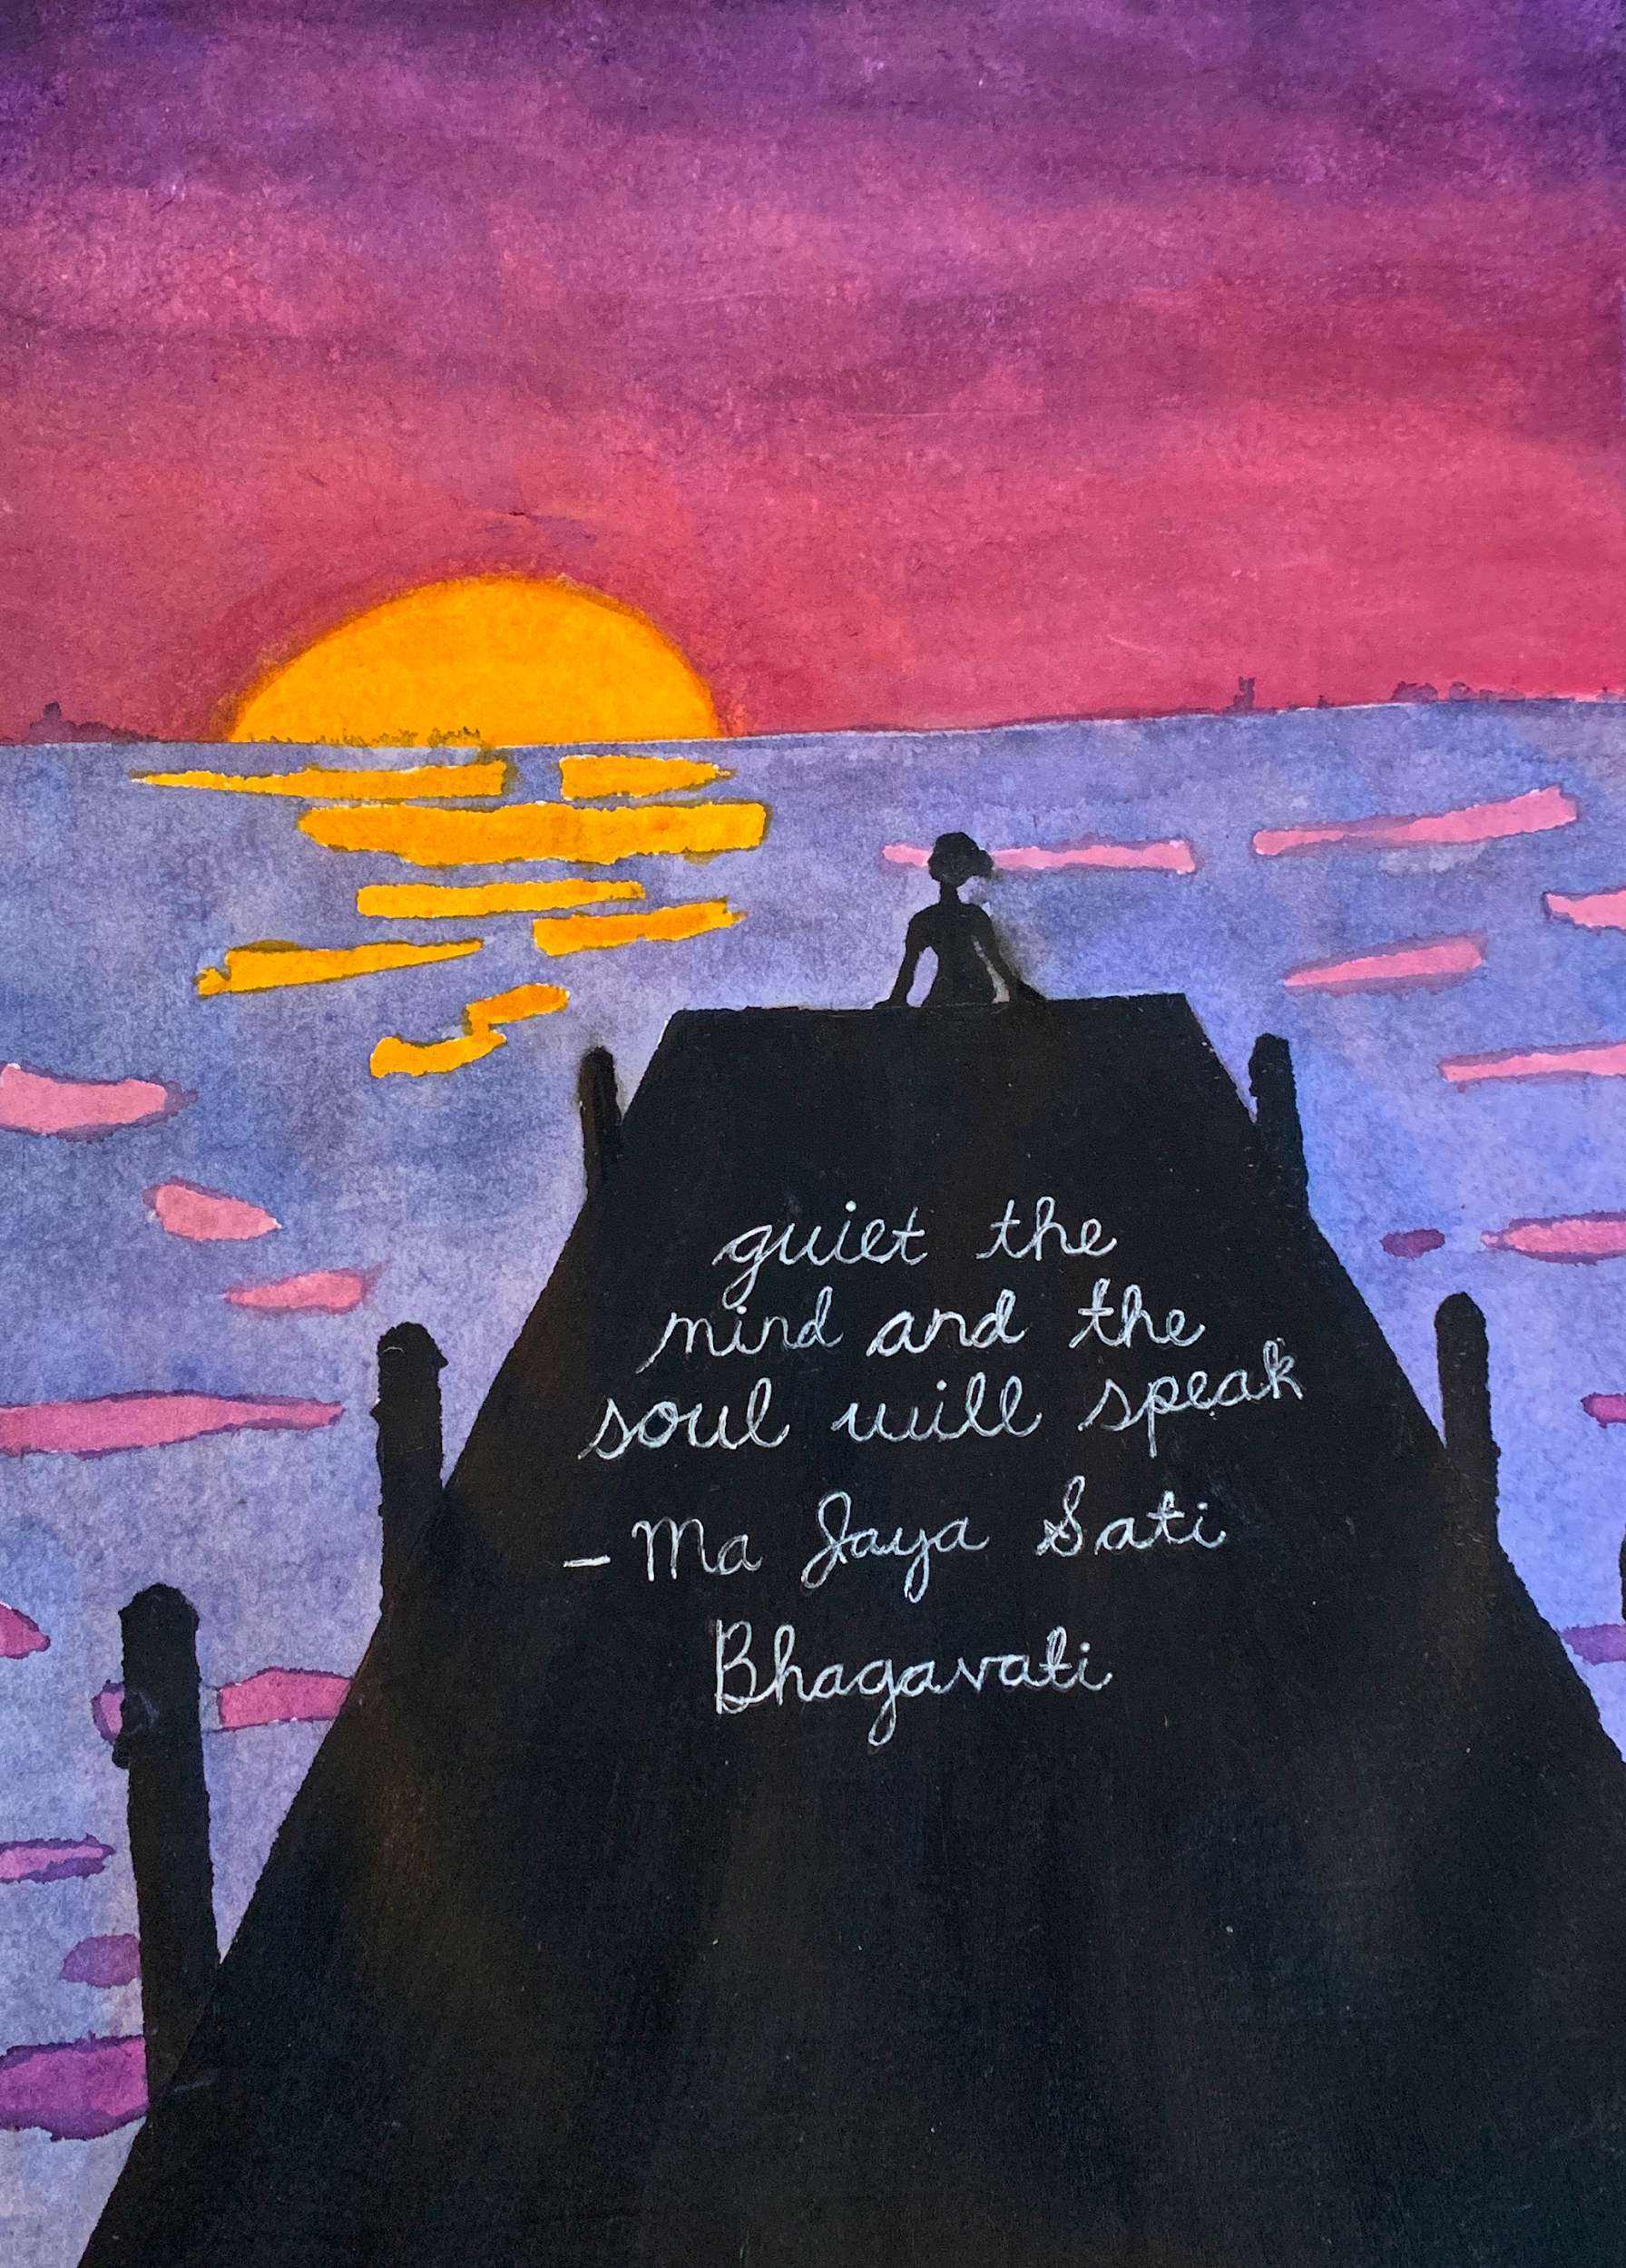 quiet the
mind and the
soul will speak
- Ma Jaya Sati
Bhagavati